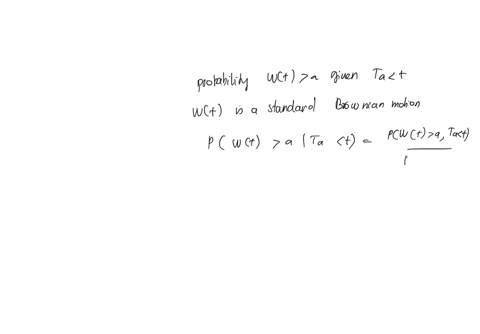 probability W(t) > a given Ta < t
W(t) is a standard Brownian motion
P( W(t) > a | Ta < t) = P(W(t) > a, Ta<t)